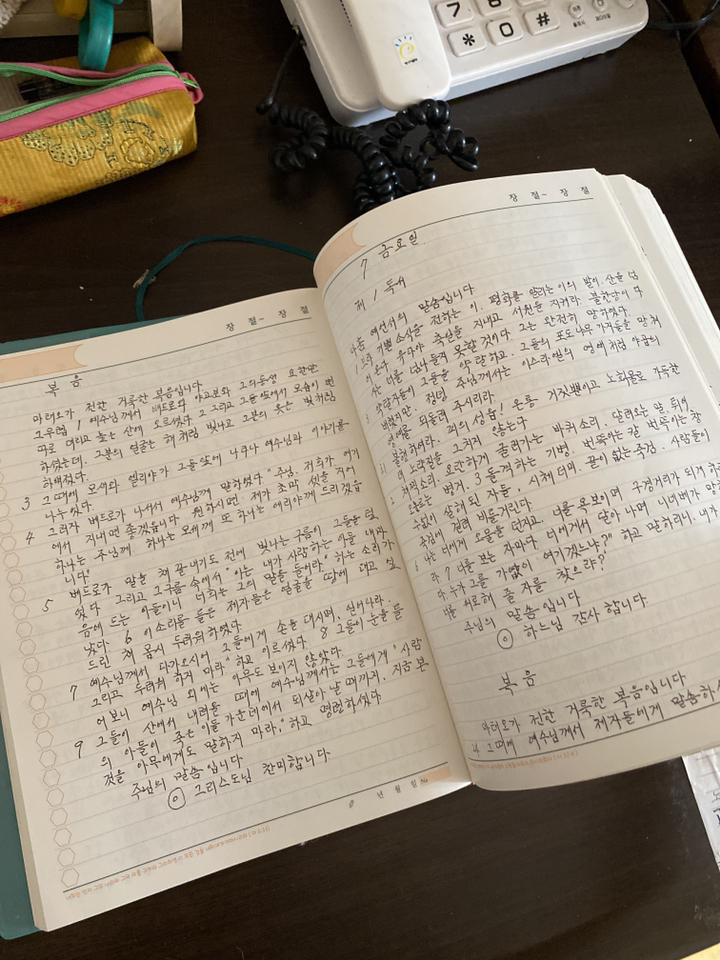 장 절~ 장 절
복음
마태오가 전한 거룩한 복음입니다
그무렵 1 예수님께서 베드로와 야고보와 그의 동생 요한만
따로 데리고 높은 산에 오르셨다. 2 그리고 그들 앞에서 모습이 변
하셨는데, 그분의 얼굴은 해처럼 빛나고 그분의 옷은 빛처럼
하얘졌다.
3 그때에 모세와 엘리야가 그들 앞에 나타나 예수님과 이야기를
나누었다.
4 그러자 베드로가 나서서 예수님께 말하였다. "주님, 저희가 여기
에서 지내면 좋겠습니다. 원하시면 제가 초막 셋을 지어
하나는 주님께 하나는 모세께 또 하나는 엘리야께 드리겠습
니다"
5 베드로가 말을 채 끝내기도 전에 빛나는 구름이 그들을 덮
었다. 그리고 그 구름 속에서 "이는 내가 사랑하는 아들 내마
음에 드는 아들이니 너희는 그의 말을 들어라" 하는 소리가
났다. 6 이 소리를 들은 제자들은 얼굴을 땅에 대고 엎
드린 채 몹시 두려워하였다.
7 예수님께서 다가오시어 그들에게 손을 대시며, 일어나라.
그리고 두려워 하지 마라." 하고 이르셨다. 8 그들이 눈을 들
어보니 예수님 외에는 아무도 보이지 않았다.
9 그들이 산에서 내려올 때에 예수님께서는 그들에게 "사람
의 아들이 죽은 이들 가운데에서 되살아 날 때까지, 지금 본
것을 아무에게도 말하지 마라." 하고 명령하셨다.
주님의 말씀입니다
◎ 그리스도님 찬미합니다.
년 월 일 No
장 절~ 장 절
7 금요일
제 1 독서
나훔 예언서의 말씀입니다
보라 기쁜 소식을 전하는 이, 평화를 알리는 이의 발이 산을 넘
어온다. 유다야 축일을 지내고 서원을 지켜라. 불한당이 다
시는 너를 넘나들지 못할 것이다. 그는 완전히 망하였다.
3 약탈자들이 그들을 약탈하고 그들의 포도나무 가지들을 망쳐
버렸지만, 정녕 주님께서는 이스라엘의 영예처럼 야곱의
영예를 되돌려 주시리라.
불행하여라, 피의 성읍! 온통 거짓뿐이고 노획물로 가득한
데 노략질을 그치지 않는구
2 채찍소리, 요란하게 굴러가는 바퀴소리, 달려오는 말, 튀어
오르는 병거. 3 돌격하는 기병, 번뜩이는 칼 번뜩이는 창
수없이 살해된 자들, 시체 더미, 끝이 없는 주검, 사람들이
주검에 걸려 비틀거린다.
6 나는 너에게 오물을 던지고, 너를 욕보이며 구경거리가 되게 하
라 7 너를 보는 자마다 너에게서 달아나며 니네베가 망
다 누가 그를 가엾이 여기겠느냐?" 하고 말하리니, 내가
너를 위로해 줄 자를 찾으랴?
주님의 말씀입니다
◎ 하느님 감사합니다.
복음
마태오가 전한 거룩한 복음입니다
24 그때에 예수님께서 제자들에게 말씀하
7
*
0
#